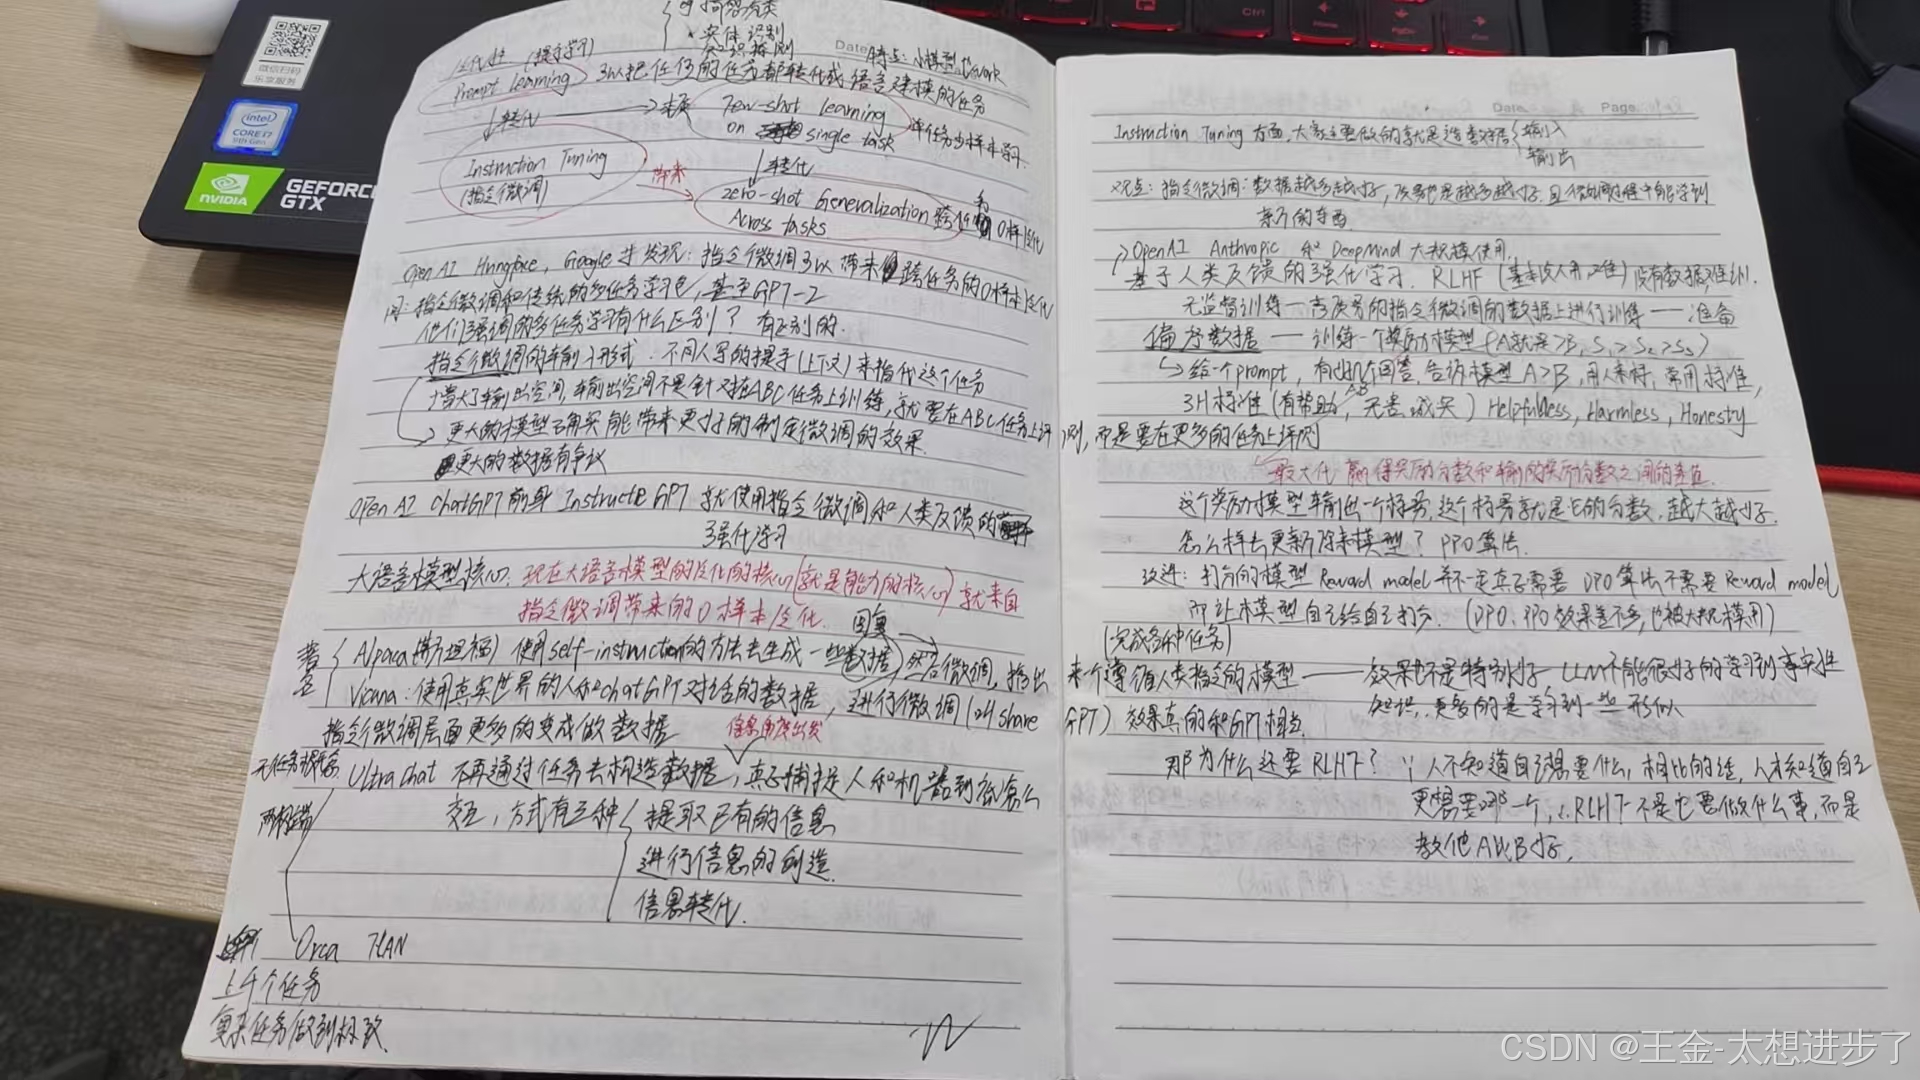 微信扫码
乐享服务
intel
CORE i7
9th Gen
NVIDIA
GEFORCE
GTX
Ctrl
Home
End
Date
实体识别
(提示学习)
特点:小模型 work
Prompt Learning 可以把任何的任务都转化成语言建模的任务
↓转化 → 本质 Few-shot learning
on single task 单任务少样本学习.
Instruction Tuning
(指令微调)
↓转化
带来
zero-shot Generalization 跨任务0样本泛化
Across tasks
OpenAI Hungface, Google 发现:指令微调可以带来跨任务的0样本泛化
问:指令微调和传统的多任务学习, 甚至GPT-2
他们强调的多任务学习有什么区别? 有区别的.
指令微调的输入形式. 不同人写的提示(上下文)来指代这个任务
增大了输出空间, 输出空间不是针对在ABC任务上训练, 就要在ABC任务上评
→ 更大的模型确实能带来更好的制定微调的效果.
更大的数据有争议
OpenAI ChatGPT前身 InstructE GPT 就使用指令微调和人类反馈的
强化学习
大语言模型核心: 现在大语言模型的泛化的核心(就是能力的核心)就来自
指令微调带来的0样本泛化.
著名
Alpaca(斯坦福) 使用self-instruction的方法去生成一些(数据)然后微调, 指出
回复
Vicuna:使用真实世界的人和chatGPT对话的数据, 进行微调(的share
指令微调层面更多的变成做数据
信息角度出发
无任务概念
Ultra Chat 不再通过任务去构造数据, 真正捕捉人和机器到底怎么
两极端
交互, 方式有三种
提取已有的信息
进行信息的创造.
信息转化.
Orca FLAN
上千个任务
复杂任务做到极致.
Date
Page
Instruction Tuning 方面, 大家主要做的就是造数据
输入
输出
观点:指令微调:数据越多越好, 质量也是越多越好. 且微调过程中能学到
新的东西
OpenAI Anthropic 和 DeepMind 大规模使用.
基于人类反馈的强化学习. RLHF 没有数据难训.
无监督训练 — 高质量的指令微调的数据上进行训练 — 准备
偏序数据 — 训练一个奖励模型 (A就是>B, S₁>S₂>S₃)
→ 给一个prompt, 有几个回答, 告诉模型A>B, 用人来标, 常用标准,
3H标准(有帮助, 无害, 诚实) Helpfulless, Harmless, Honesty
测, 而是要在更多的任务上评测
最大化 赢得奖励分数和输的奖励分数之间的差值
这个奖励模型输出一个标量, 这个标量就是它的分数, 越大越好.
怎么样去更新原来模型? PPO算法.
改进:打分的模型 Reward model 并不一定真正需要 DPO算法不需要Reward model
而让模型自己给自己打分. (DPO、PPO效果差不多, 也被大规模用)
(完成各种任务)
来个遵循人类指令的模型 —— 效果也不是特别好 LLM不能很好的学习到事实性
知识, 更多的是学习到一些形似
GPT) 效果真的和GPT相当.
那为什么还要RLHF? ∵ 人不知道自己想要什么, 相比的话, 人才知道自己
更想要哪一个, ∴ RLHF 不是它要做什么事, 而是
教他A比B好.
CSDN @王金-太想进步了